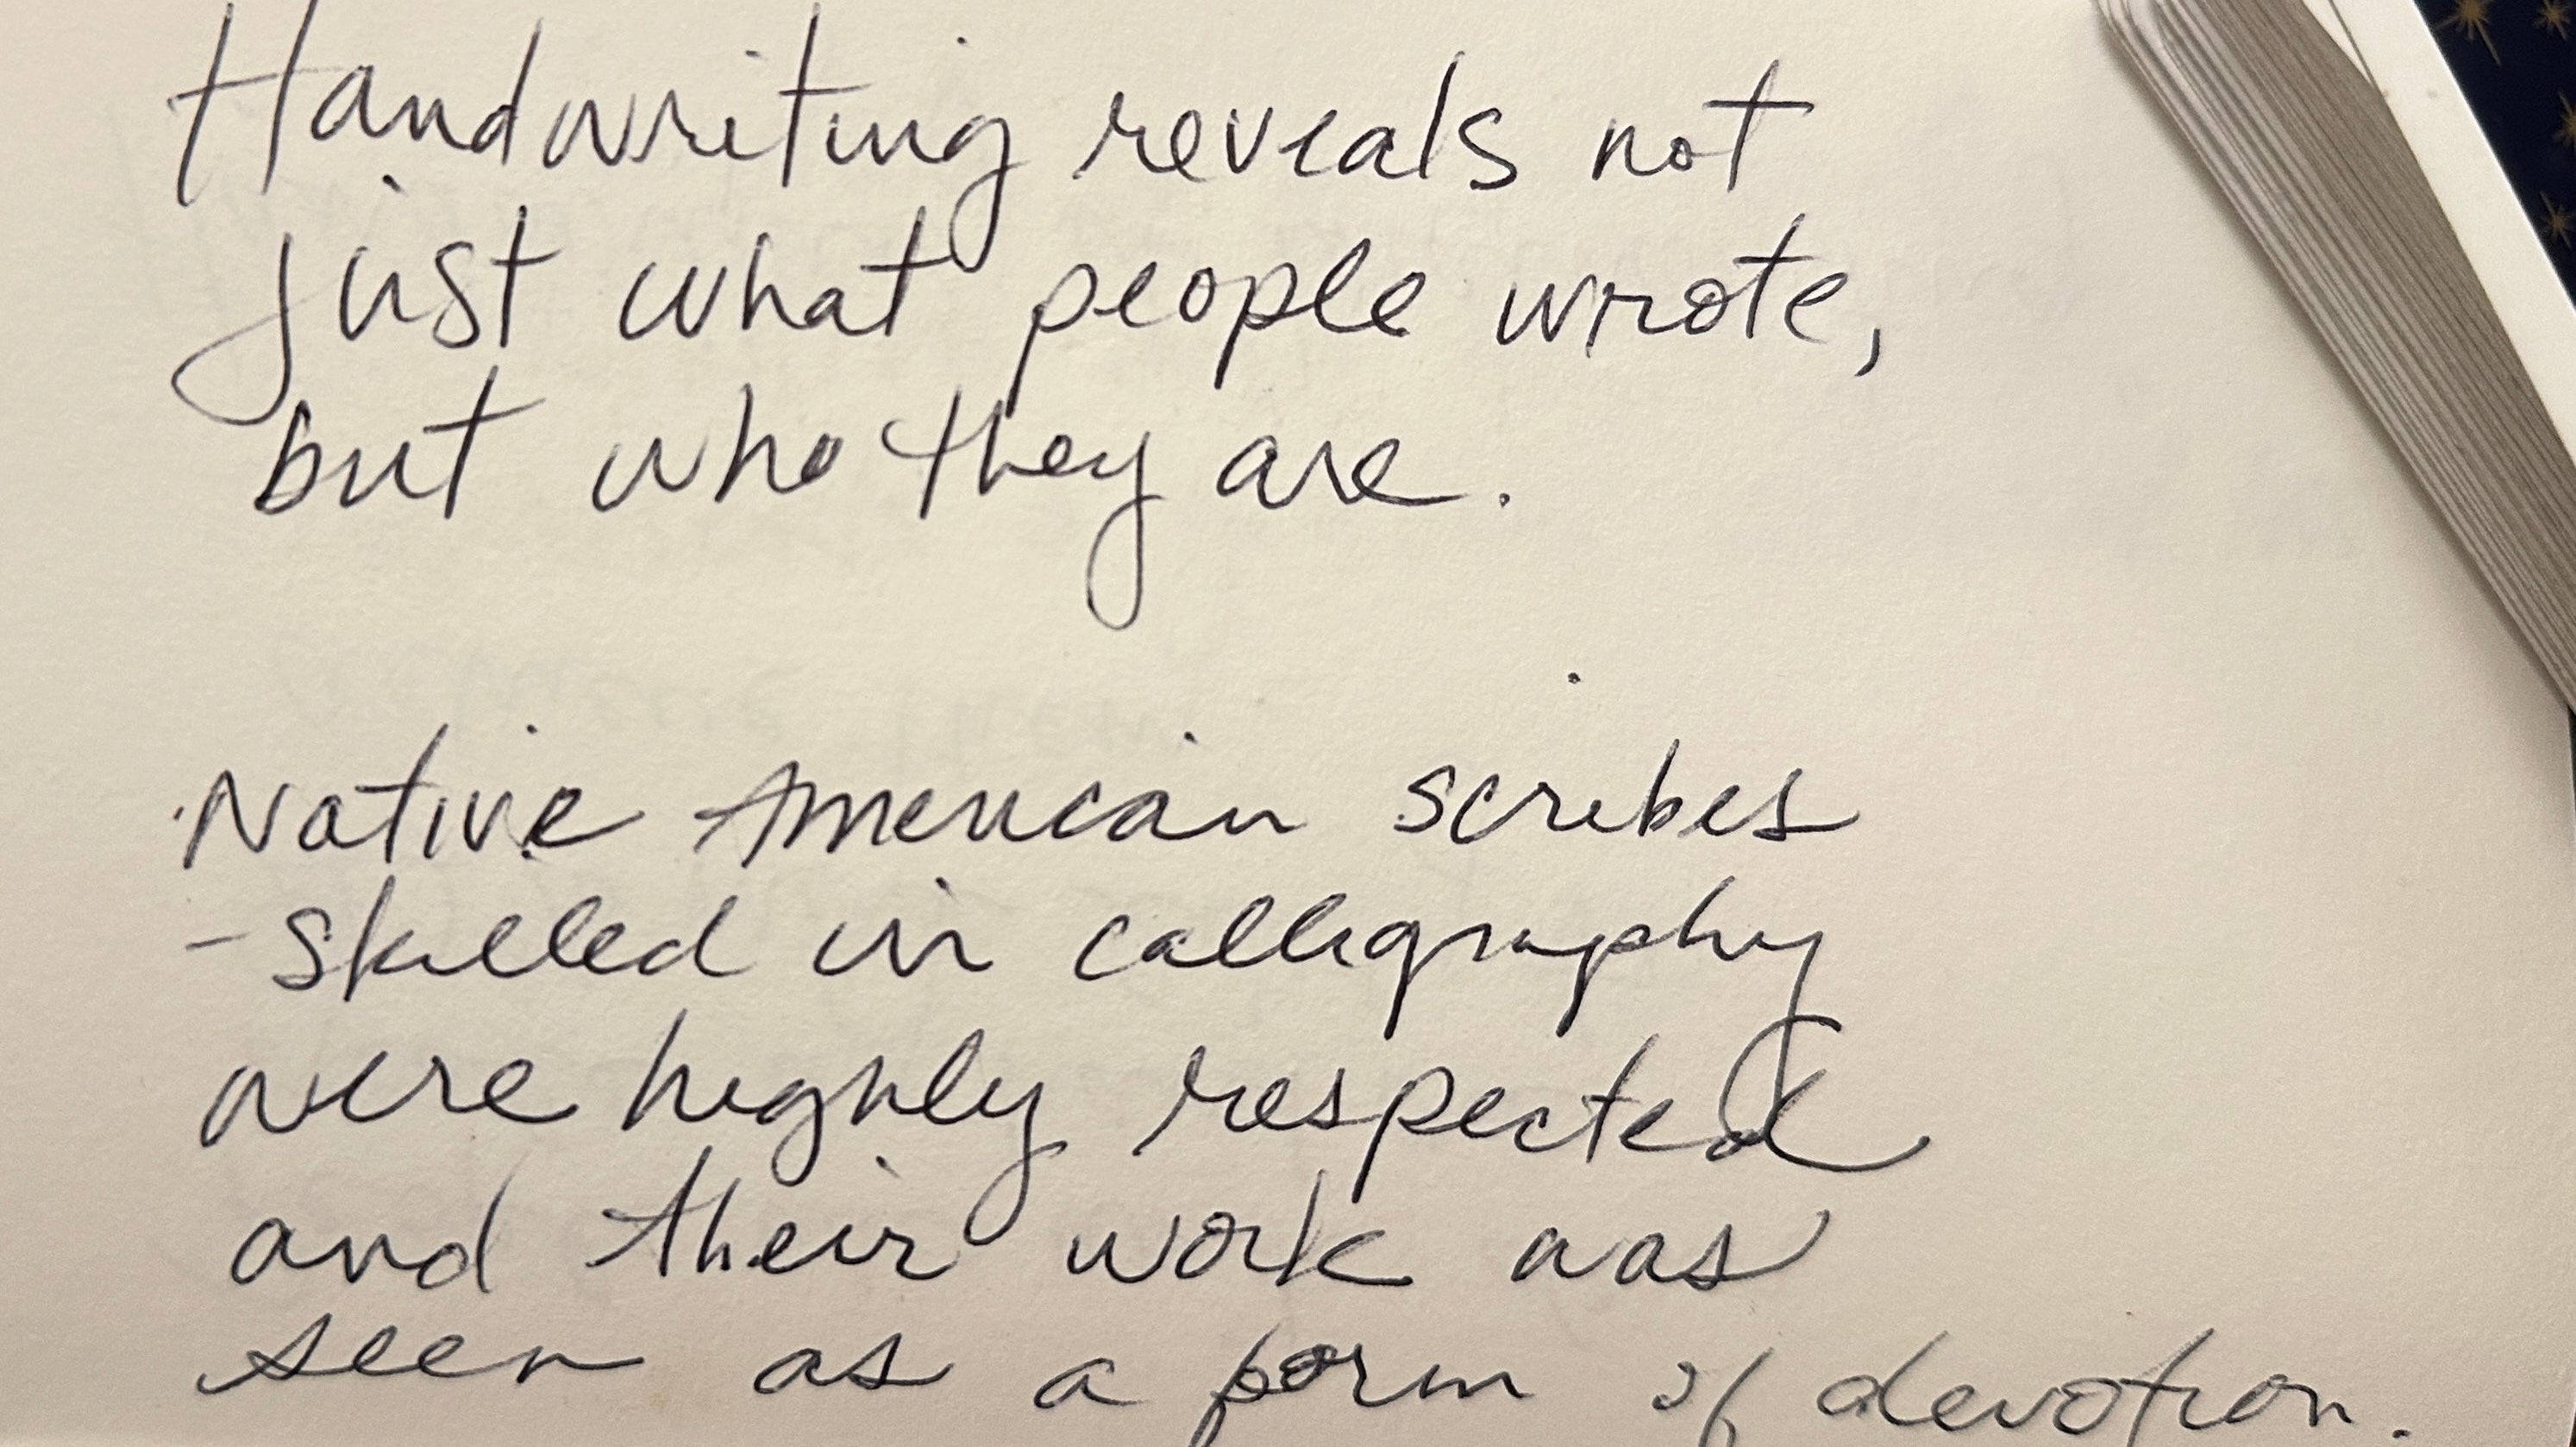 Handwriting reveals not
just what people wrote,
but who they are.
Native American scribes
- skilled in calligraphy
were highly respected
and their work was
seen as a form of devotion.